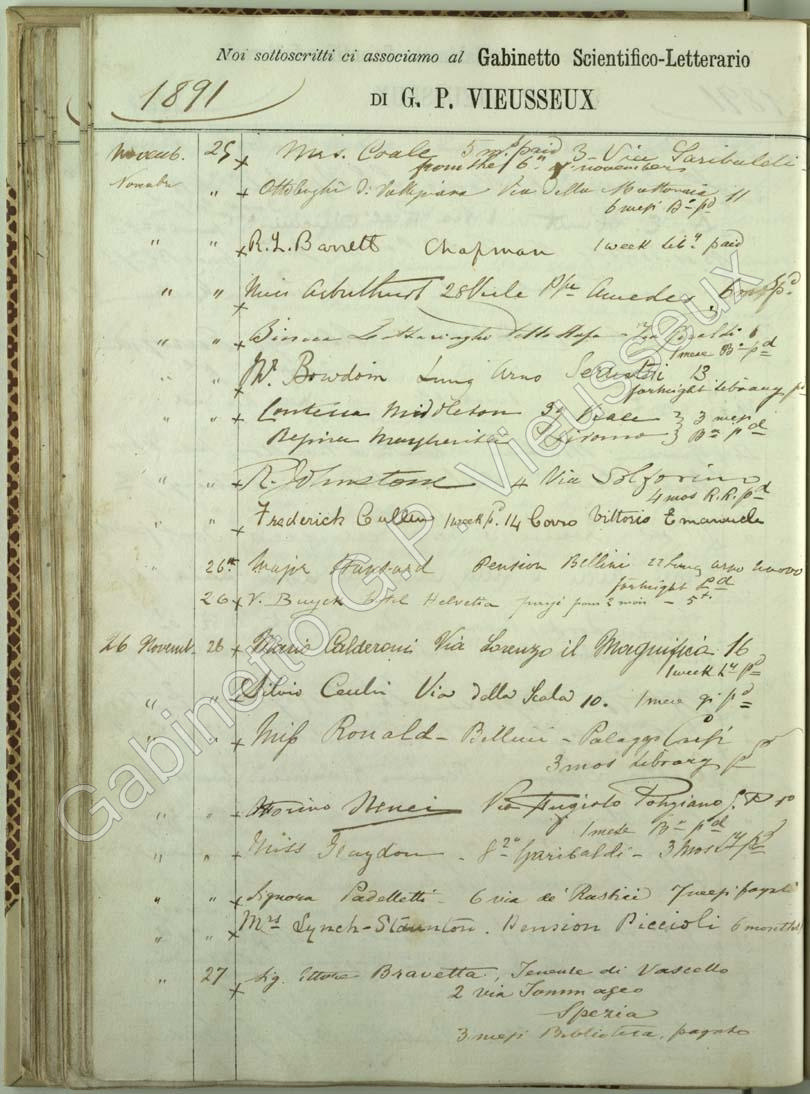 Noi sottoscritti ci associamo al Gabinetto Scientifico-Letterario
DI G. P. VIEUSSEUX
1891
Novemb. 25 x Mrs. Coale 3 ms. paid 3 - Via Garibaldi -
from the 6th November
Novembre " x Ottolenghi di Vallepiana Via della Mattonaia 11
6 mesi Ba pd
" " x R. L. Barrett Chapman 1 week liby paid
" " x Miss Arbuthnot 28 Viale Ppe Amedeo. 6 pd
" " x
1 mese Ba pd
" " x W. Bowdoin Lung Arno Serristori 13
fortnight library pd
" " x Contessa Middleton Viale 3 mesi
Regina Margherita Livorno Ba pd
" " x R. Johnstone 4 Via Solferino
4 mos R.R. pd
" " x Frederick Cullen 1 week p. 14 Corso Vittorio Emanuele
26th Major Hansard Pension Bellini 22 Lung arno nuovo
fortnight pd
26 x V. Buyck Hotel Helvetia payé pour 2 mois - 5
26 Novemb. 26 x Mario Calderoni Via Lorenzo il Magnifico 16
1 week Ly pd
" " x Silvio Via della Scala 10. 1 mese pd
" " x Miss Ronald - Bellini - Palazzo
3 mos library pd
" " x Via Angiolo Poliziano
1 mese Ba pd
" " x Miss Graydon - Garibaldi - 3 mos Ly pd
" " x Signora Padelletti - 6 via de' Rustici 7 mesi pagati
" " x Mrs Lynch-Staunton. Pension Piccioli 6 months
" 27 x Sig. Ettore Bravetta, Tenente di Vascello
2 via Tommaseo
Spezia
3 mesi Biblioteca, pagato
Gabinetto G.P. Vieusseux